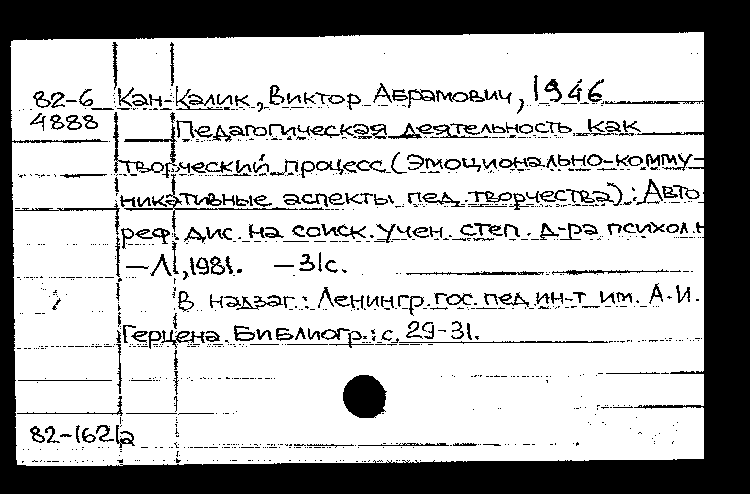 82-6 Кан-Калик, Виктор Абрамович, 1946
4888 Педагогическая деятельность как
творческий процесс (Эмоционально-комму-
никативные аспекты пед. творчества): Авто
реф. дис. на соиск. учен. степ. д-ра психол. н
— Л., 1981. — 31с.
В надзаг.: Ленингр. гос. пед. ин-т им. А.И.
Герцена. Библиогр.: с. 29-31.
82-1621а